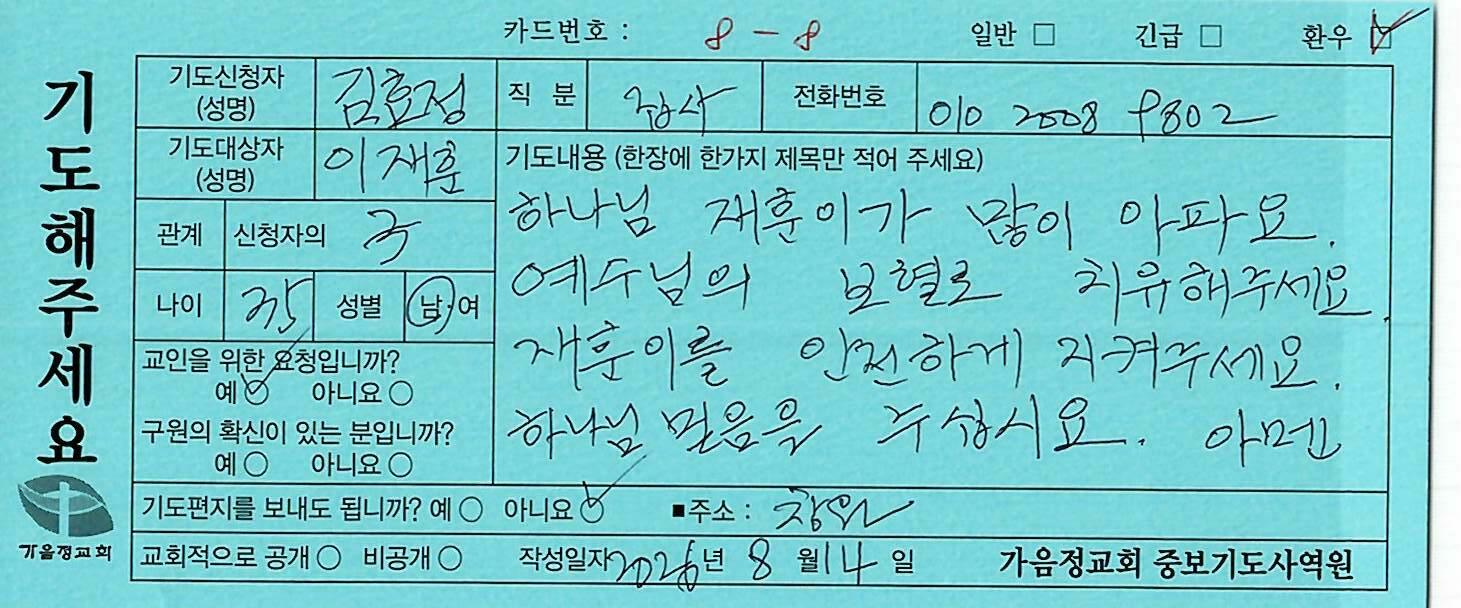 카드번호 : 8-8 일반 □ 긴급 □ 환우 ☑
기도해주세요
기도신청자 (성명) 김효정 직분 집사 전화번호 010 2008 9802
기도대상자 (성명) 이재훈
관계 신청자의
나이 35 성별 남, 여
교인을 위한 요청입니까?
예 ○ 아니요 ○
구원의 확신이 있는 분입니까?
예 ○ 아니요 ○
기도내용 (한장에 한가지 제목만 적어 주세요)
하나님 재훈이가 많이 아파요.
예수님의 보혈로 치유해주세요.
재훈이를 안전하게 지켜주세요.
하나님 믿음을 주십시요. 아멘
기도편지를 보내도 됩니까? 예 ○ 아니요 ○ ■주소 : 창원
교회적으로 공개 ○ 비공개 ○ 작성일자 2026년 8월 14일 가음정교회 중보기도사역원
가음정교회